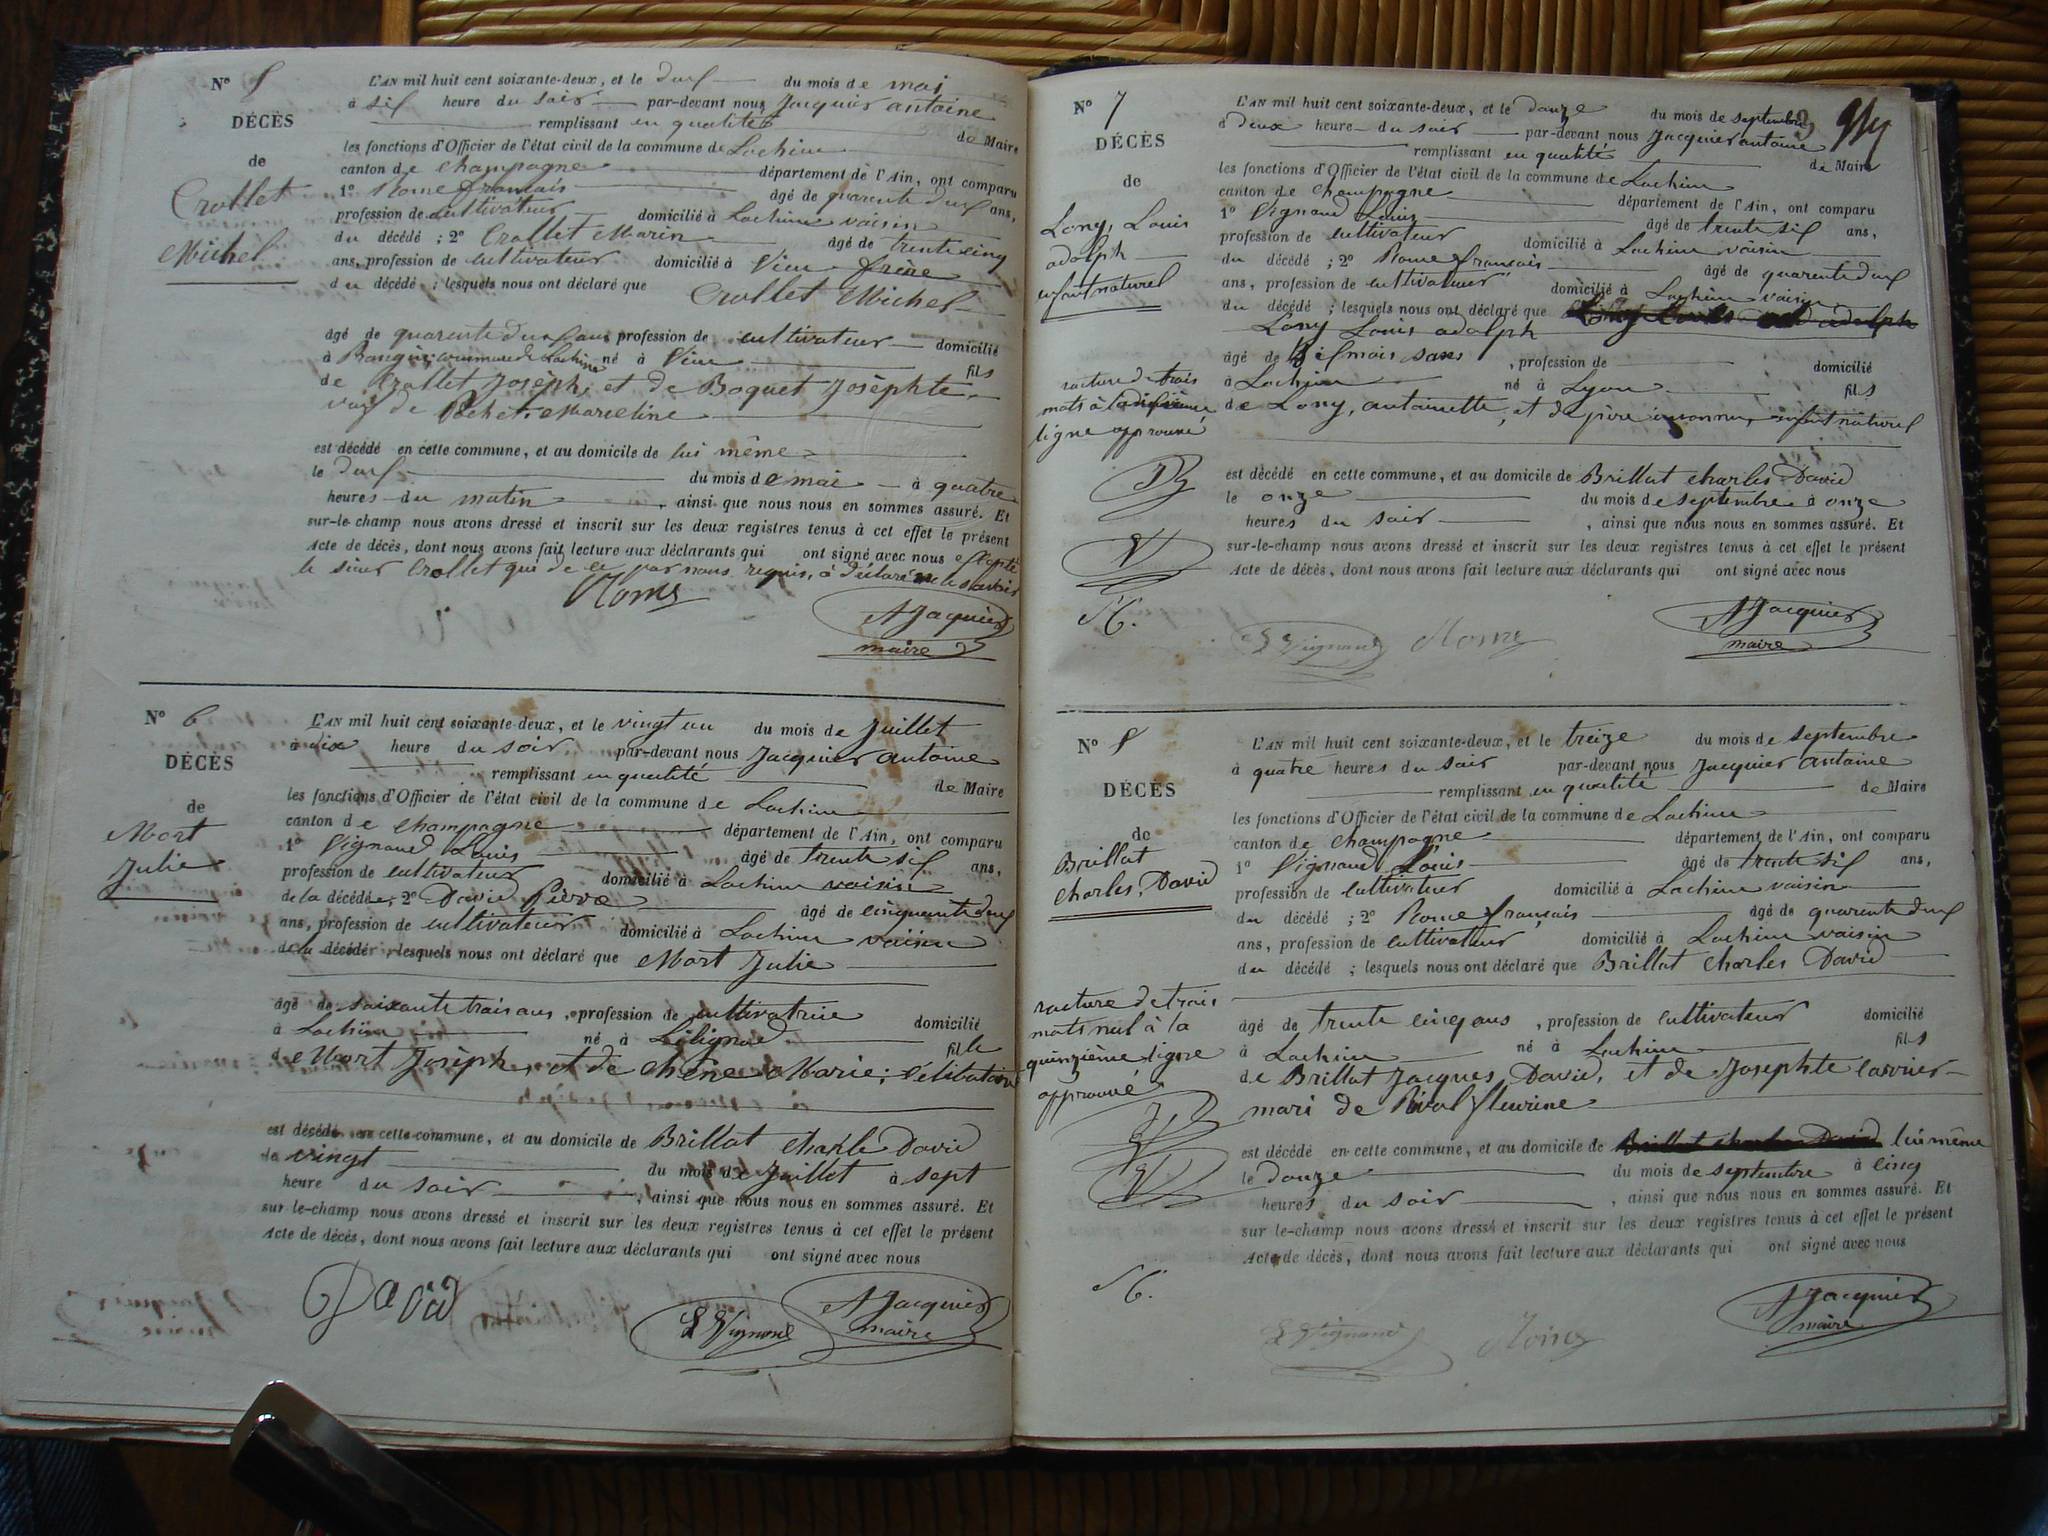 N° 5
DÉCÈS
de
Crollet
Michel
L'AN mil huit cent soixante-deux, et le deux du mois de mai
à six heure du soir par-devant nous Jacquier antoine
remplissant en qualité de Maire
les fonctions d'Officier de l'état civil de la commune de Lochieu
canton de Champagne département de l'Ain, ont comparu
1° Rome français âgé de quarente deux ans,
profession de cultivateur domicilié à Lochieu voisin
du décédé ; 2° Crollet Marin âgé de trente cinq
ans, profession de cultivateur domicilié à Vieu frère
du décédé ; lesquels nous ont déclaré que Crollet Michel
âgé de quarente deux ans profession de cultivateur domicilié
à commune de Lochieu né à Vieu fils
de Crollet Josèph, et de Boquet Josèphte
de Marceline
est décédé en cette commune, et au domicile de lui même
le deux du mois de mai à quatre
heures du matin, ainsi que nous nous en sommes assuré. Et
sur-le-champ nous avons dressé et inscrit sur les deux registres tenus à cet effet le présent
Acte de décès, dont nous avons fait lecture aux déclarants qui ont signé avec nous excepté
le sieur Crollet qui de ce par nous requis, à déclaré ne le savoir
Rome
A Jacquier
maire
N° 6
DÉCÈS
de
Mort
Julie
L'AN mil huit cent soixante-deux, et le vingt un du mois de Juillet
à dix heure du soir par-devant nous Jacquier antoine
remplissant en qualité de Maire
les fonctions d'Officier de l'état civil de la commune de Lochieu
canton de Champagne département de l'Ain, ont comparu
1° Vignaud Louis âgé de trente six ans,
profession de cultivateur domicilié à Lochieu voisin
de la décédée, 2° David Pierre âgé de cinquante deux
ans, profession de cultivateur domicilié à Lochieu voisin
de la décédée ; lesquels nous ont déclaré que Mort Julie
âgé de soixante trois ans, profession de cultivatrice domicilié
à Lochieu né à Lilignod fille
de Mort Josèph, et de Chêne Marie ; célibataire
est décédé en cette commune, et au domicile de Brillat Charle David
le vingt du mois de Juillet à sept
heure du soir, ainsi que nous nous en sommes assuré. Et
sur-le-champ nous avons dressé et inscrit sur les deux registres tenus à cet effet le présent
Acte de décès, dont nous avons fait lecture aux déclarants qui ont signé avec nous
David
L Vignaud
A Jacquier
maire
N° 7
DÉCÈS
de
Lony, Louis
adolph
enfant naturel
L'AN mil huit cent soixante-deux, et le douze du mois de septembre
à deux heure du soir par-devant nous Jacquier antoine
remplissant en qualité de Maire
les fonctions d'Officier de l'état civil de la commune de Lochieu
canton de Champagne département de l'Ain, ont comparu
1° Vignaud Louis âgé de trente six ans,
profession de cultivateur domicilié à Lochieu voisin
du décédé ; 2° Rome français âgé de quarente deux
ans, profession de cultivateur domicilié à Lochieu voisin
du décédé ; lesquels nous ont déclaré que
Lony Louis adolph
âgé de six mois sans, profession de domicilié
à Lochieu né à Lyon fils
de Lony, antoinette, et de père inconnu, enfant naturel
rature de trois
mots à la
ligne approuvé
est décédé en cette commune, et au domicile de Brillat Charles David
le onze du mois de septembre à onze
heures du soir, ainsi que nous nous en sommes assuré. Et
sur-le-champ nous avons dressé et inscrit sur les deux registres tenus à cet effet le présent
Acte de décès, dont nous avons fait lecture aux déclarants qui ont signé avec nous
L Vignaud
Rome
A Jacquier
maire
N° 8
DÉCÈS
de
Brillat
Charles, David
L'AN mil huit cent soixante-deux, et le treize du mois de septembre
à quatre heures du soir par-devant nous Jacquier antoine
remplissant en qualité de Maire
les fonctions d'Officier de l'état civil de la commune de Lochieu
canton de Champagne département de l'Ain, ont comparu
1° Vignaud Louis âgé de trente six ans,
profession de cultivateur domicilié à Lochieu voisin
du décédé ; 2° Rome français âgé de quarente deux
ans, profession de cultivateur domicilié à Lochieu voisin
du décédé ; lesquels nous ont déclaré que Brillat Charles David
âgé de trente cinq ans, profession de cultivateur domicilié
à Lochieu né à Lochieu fils
de Brillat Jacques, David, et de Josephte
mari de Rival fleurine
rature de trois
mots nul à la
quinzième ligne
approuvé
est décédé en cette commune, et au domicile de Brillat Charles David lui même
le douze du mois de septembre à cinq
heures du soir, ainsi que nous nous en sommes assuré. Et
sur-le-champ nous avons dressé et inscrit sur les deux registres tenus à cet effet le présent
Acte de décès, dont nous avons fait lecture aux déclarants qui ont signé avec nous
L Vignaud
Rome
A Jacquier
maire